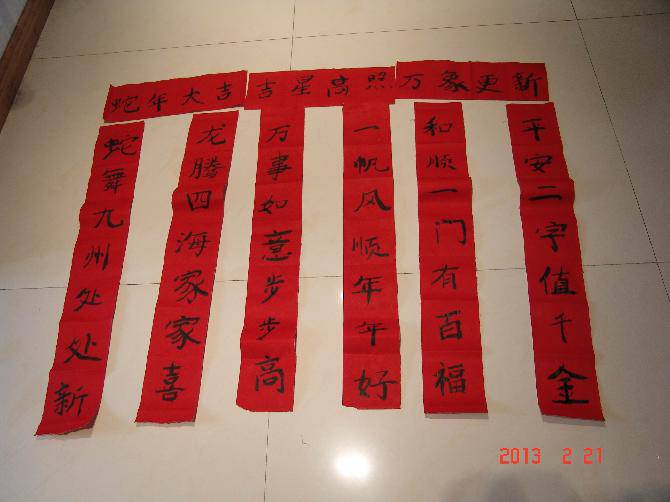 蛇年大吉
吉星高照
万象更新
蛇舞九州处处新
龙腾四海家家喜
万事如意步步高
一帆风顺年年好
和顺一门有百福
平安二字值千金
2013 2 21